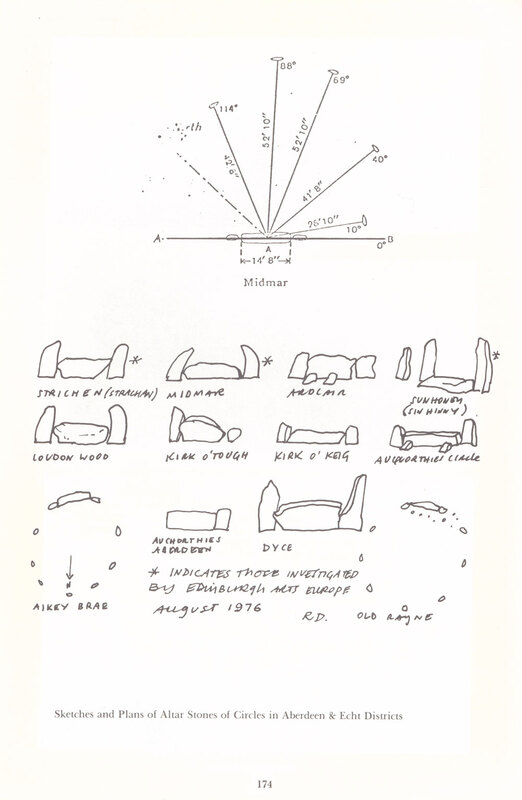 88°
69°
114°
52'10"
52'10"
rth
42'8"
40°
41'8"
26'10"
10°
A
B
0°
A
14'8"
Midmar
STRICHEN (STRACHAN) *
MIDMAR *
ARDLAIR
SUNHONEY *
(SINHINNY)
LOUDON WOOD
KIRK O'TOUGH
KIRK O'KEIG
AUQUORTHIES CIRCLE
AUCHORTHIES
ABERDEEN
DYCE
* INDICATES THOSE INVESTIGATED
BY EDINBURGH ARTS EUROPE
AUGUST 1976
R.D.
AIKEY BRAE
OLD RAYNE
Sketches and Plans of Altar Stones of Circles in Aberdeen & Echt Districts
174